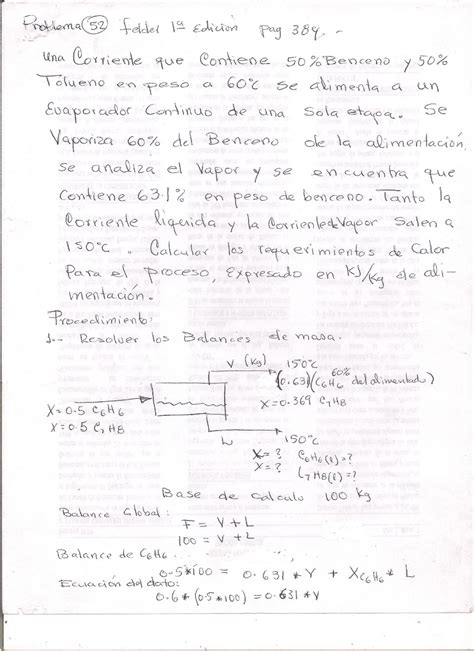 Problema 52 felder 1ª Edición pag 384.-
una Corriente que Contiene 50% Benceno y 50%
Tolueno en peso a 60°C se alimenta a un
Evaporador Continuo de una Sola etapa. Se
Vaporiza 60% del Benceno de la alimentación,
se analiza el Vapor y se encuentra que
Contiene 63.1% en peso de benceno. Tanto la
Corriente liquida y la Corriente de Vapor Salen a
150°C. Calcular los requerimientos de Calor
Para el proceso, Expresado en KJ/Kg de ali-
mentación.
Procedimiento:
1.- Resolver los Balances de masa.
V (Kg) 150°C
60%
(0.631)(C6H6 del alimentado)
X=0.369 C7H8
X=0.5 C6H6
X=0.5 C7H8
L 150°C
X=? C6H6(l)=?
X=? C7H8(l)=?
Base de Calculo 100 Kg
Balance Global:
F = V+L
100 = V+L
Balance de C6H6.
0.5*100 = 0.631*V + XC6H6*L
Ecuación del dato:
0.6*(0.5*100)=0.631*V